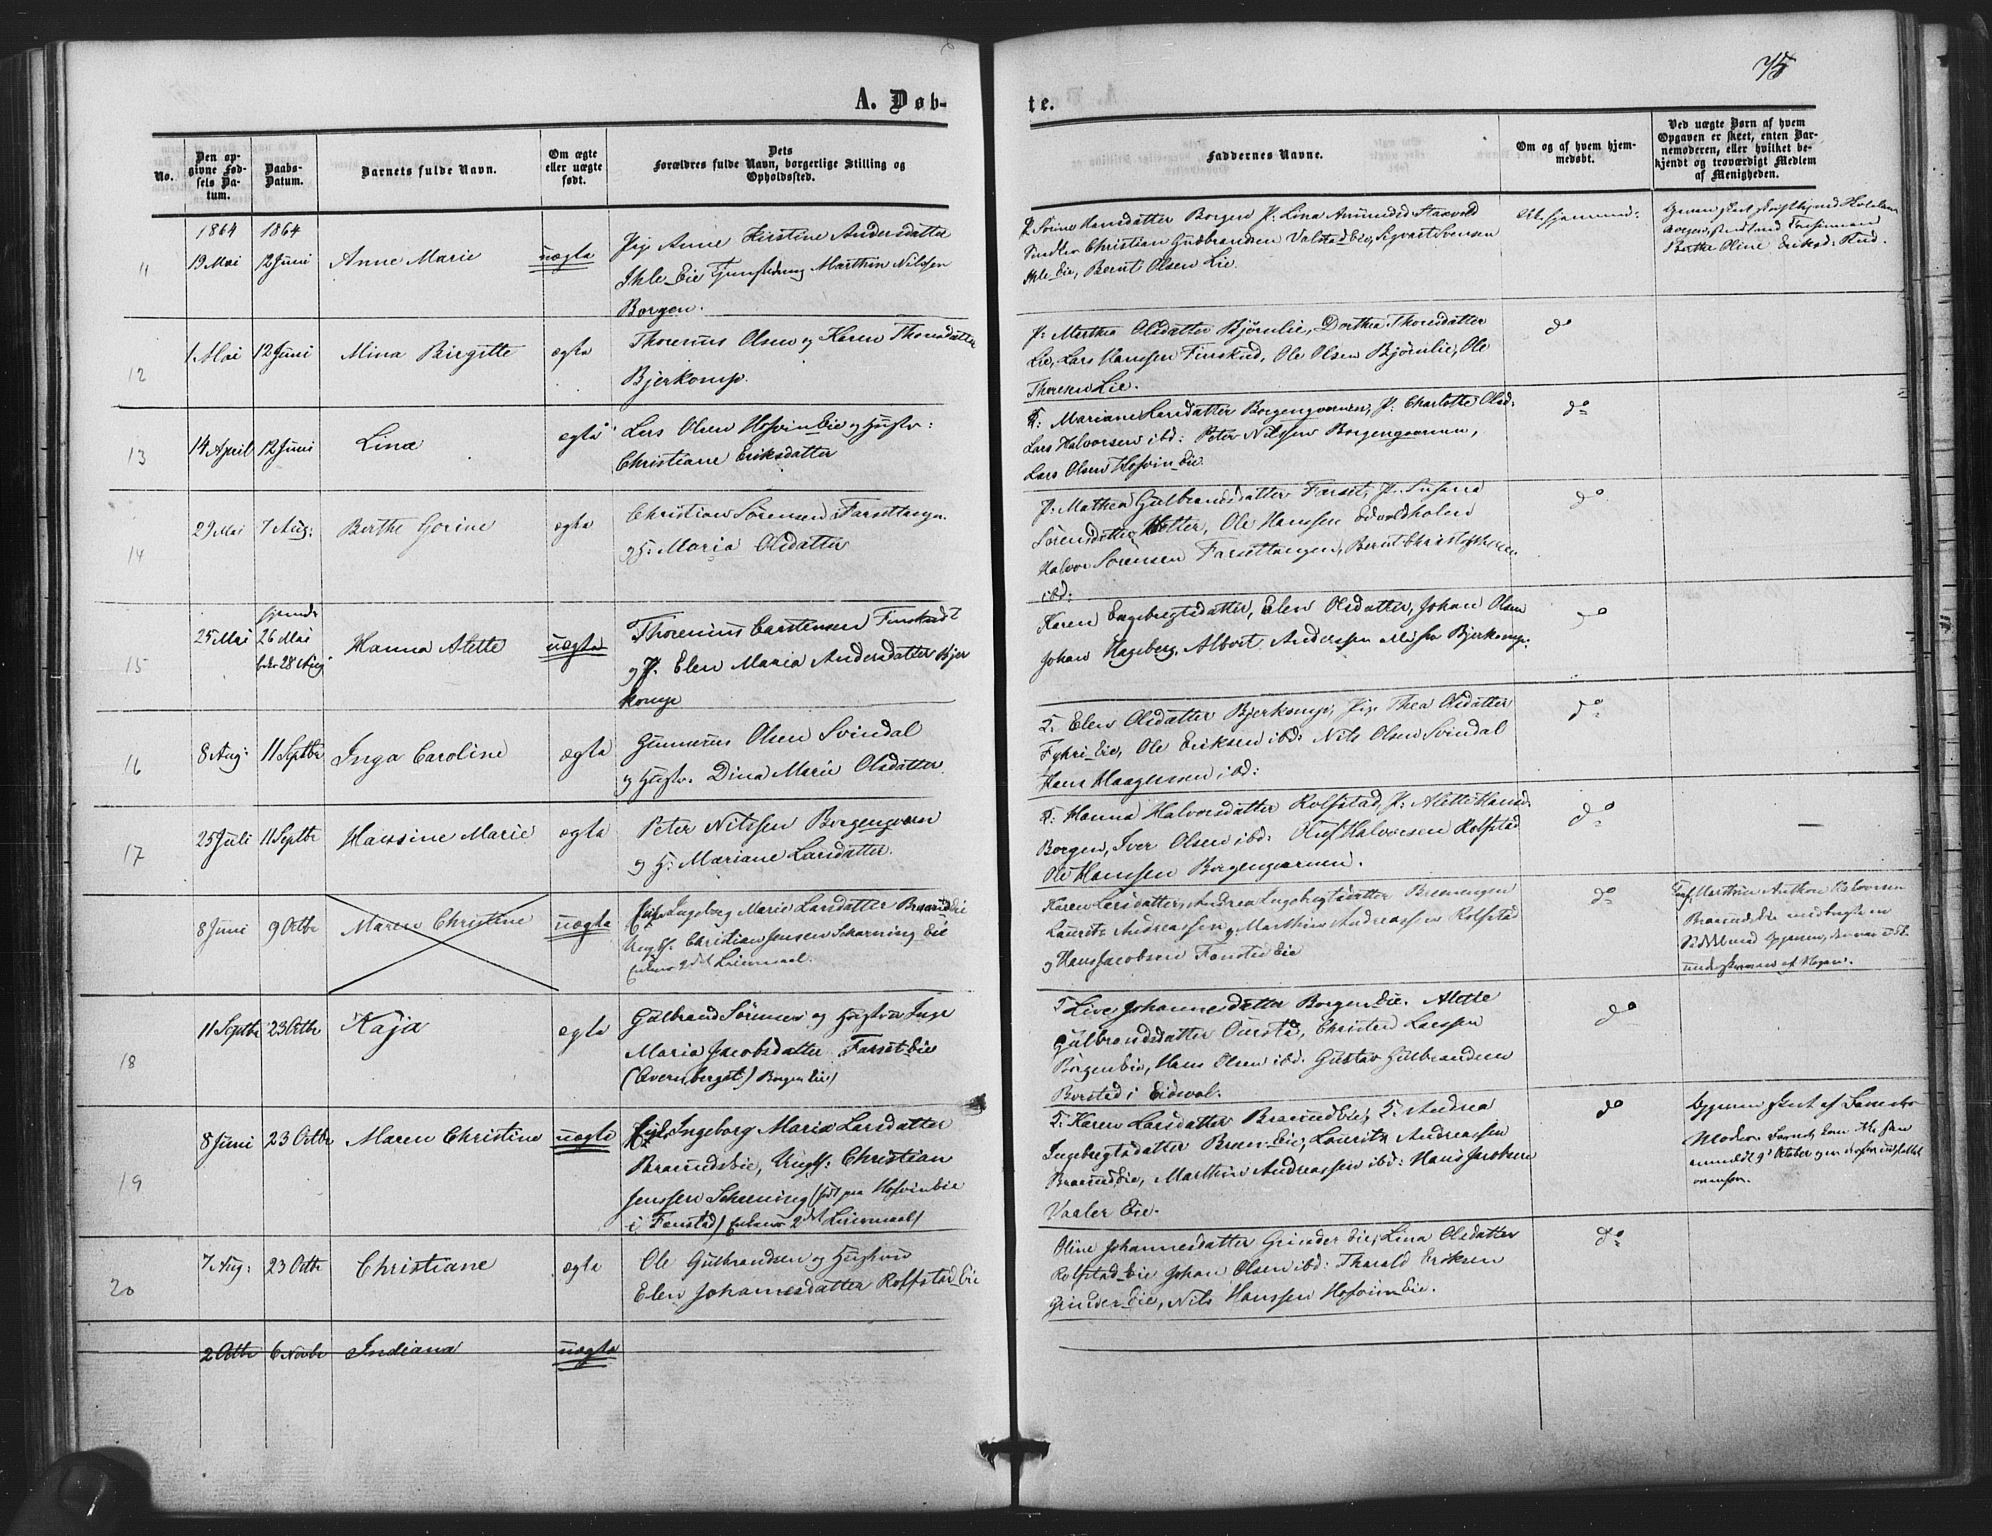 75
A. Døb-
te.
No.
Den op-
givne Fød-
sels Da-
tum.
Daabs-
Datum.
Barnets fulde Navn.
Om ægte
eller uægte
født.
Dets
Forældres fulde Navn, borgerlige Stilling og
Opholdssted.
Faddernes Navne.
Om og af hvem hjem-
medøbt.
Ved uægte Børn af hvem
Opgaven er skeet, enten Bar-
nemoderen, eller hvilket be-
kjendt og troværdigt Medlem
af Menigheden.
1864
1864
11
19 Mai
12 Juni
Anne Marie
uægta
Pig Anne Kirstine Andersdatter
Ihle Eie Marthin Nilssen
Borgen.
Hansdatter Borgen P. Lina Amundsd
Christian Gudbrandsen Valstad Eie, Sigvart Svensen
Ihle Eie, Bernt Olsen Lie.
Berthe Oline Eriksd:
12
1 Mai
12 Juni
Mina Birgitte
ægta
Thorenius Olsen og Karen Thorsdatter
Bjerkomp.
P: Marthea Olsdatter Bjørnlie, Dorthea Thorsdatter
Lie, Lars Hanssen Finskud, Ole Olsen Bjørnlie, Ole
Thoresen Lie.
do
13
14 April
12 Juni
Lina
ægta
Lars Olsen Hofvin Eie og Hustr:
Christiane Eriksdatter
Mariane Larsdatter Borgengveren, P: Charlotte Olsd:
Lars Halvorsen ibd: Peter Nilssen Borgengveren,
Lars Olsen Hofvin Eie
do
14
29 Mai
7 Aug:
Berthe Gorine
ægta
Christian Sørensen Farsettangen
og H: Maria Olsdatter
P: Mathea Gulbrandsdatter Farset, P. Susana
Sørensdatter Ole Hanssen Edvoldholen
Halvor Sørensen Farsettangen, Bernt Christophersen
ibd:
do
15
25 Mai
26 Mai
28 Aug
Hanna Alette
uægta
Thorenius Carstensen Finskud
og P. Elen Maria Andersdatter Bjer
komp
Karen Engebregtsdatter, Elen Olsdatter, Johan Olsen
Johan Hageberg, Albert Anderssen Bjerkomp.
do
16
8 Aug:
11 Septbr
Inga Caroline
ægta
Gunnerus Olsen Svindal
og Hustr. Dina Marie Olsdatter
Elen Olsdatter Bjerkomp, Pig. Thea Olsdatter
Eie, Ole Eriksen ibd: Nils Olsen Svindal
Hans Haagenssen ibd:
do
17
25 Juli
11 Septbr
Hansine Marie
ægta
Peter Nilssen Borgengveren
og H: Mariane Larsdatter.
Hanna Halvorsdatter Rolfstad, P: Alette Hansd.
Borgen, Iver Olsen ibd: Oluf Halvorsen Rolfstad
Ole Hanssen Borgengveren.
do
8 Juni
9 Octbr
Maren Christine
uægta
Pige Ingeborg Marie Larsdatter Braarud Eie
Ungk. Christian Jensen Scharning Eie
2det Leiermaal.
Karen Larsdatter, Andrea Ingebregtsdatter
Lauritz Andreassen, Marthin Andreassen Rolfstad
og Hans Jacobsen Fonstad Eie
do
Marthin Anthon Halvorsen
18
11 Septbr
23 Octbr
Kaja
ægta
Gulbrand Sørensen og Hustru Inge
Maria Jacobsdatter Farset Eie
Borgen Eie)
Live Johannesdatter Borgen Eie. Alette
Gulbrandsdatter Ourstad, Christen Larssen
Borgen Eie, Hans Olsen ibd. Gustav Gulbrandsen
Borstad i Eidsvol.
do
19
8 Juni
23 Octbr
Maren Christine
uægte
Pige Ingeborg Maria Larsdatter
Braarudeie, Ungk: Christian
Jenssen Scharning (født paa Hofvin Eie
i Fonstad) 2det Leiermaal)
Karen Larsdatter Braarud Eie, Andrea
Ingebregtsdatter Eie, Lauritz Andreassen
Braarud Eie, Marthin Andreassen ibd: Hans Jacobsen
Vaaler Eie.
do
af
Moder.
October
20
7 Aug:
23 Octbr
Christiane
ægta
Ole Gulbrandsen og Hustru
Elen Johannesdatter Rolfstad Eie
Oline Johannesdatter Grinder Eie, Lina Olsdatter
Rolfstad Eie Johan Olsen ibd: Tharald Eriksen
Grinder Eie, Nils Hanssen Hofvin Eie.
do
2 Octbr
6 Novbr
Indiana
uægta